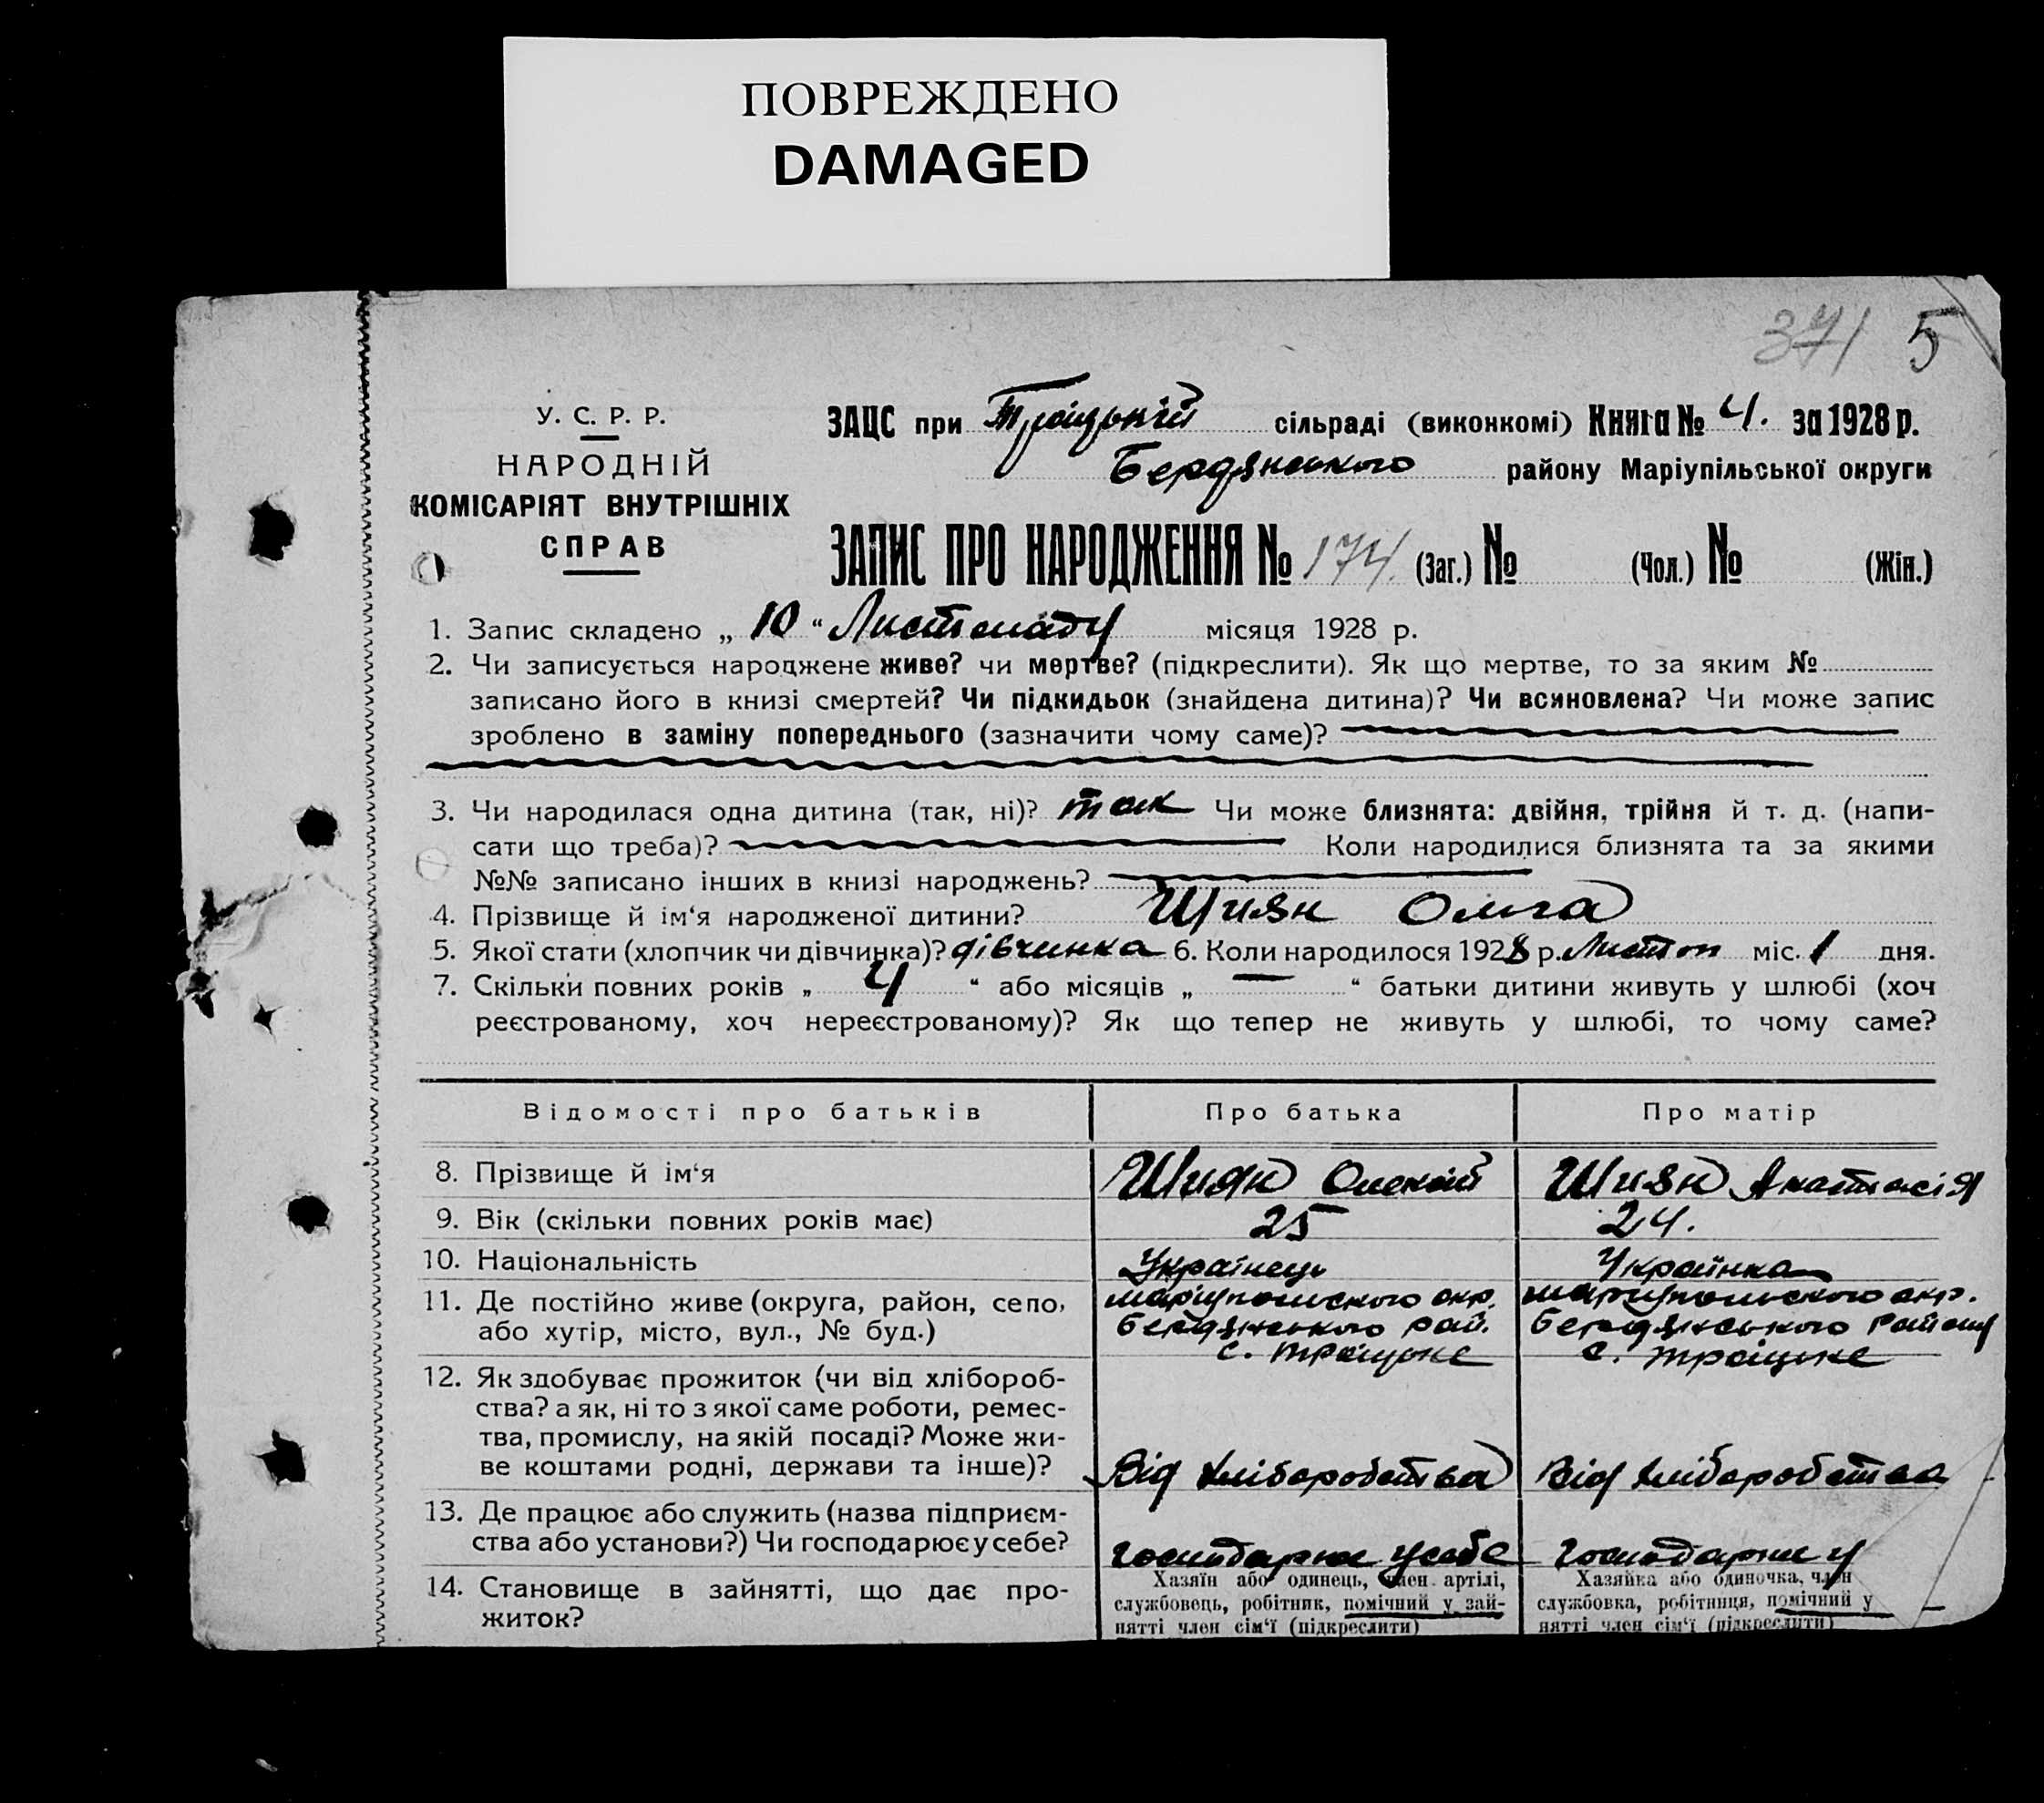 ПОВРЕЖДЕНО
DAMAGED
371 5
У. С. Р. Р.
НАРОДНІЙ
КОМІСАРІЯТ ВНУТРІШНІХ
СПРАВ
ЗАЦС при Троіцькій сільраді (виконкомі) Книга № 4. за 1928 р.
Бердянського району Маріупільської округи
ЗАПИС ПРО НАРОДЖЕННЯ № 174. (Заг.) № (Чол.) № (Жін.)
1. Запис складено „ 10 “ Листопаду місяця 1928 р.
2. Чи записується народжене живе? чи мертве? (підкреслити). Як що мертве, то за яким №
записано його в книзі смертей? Чи підкидьок (знайдена дитина)? Чи всиновлена? Чи може запис
зроблено в заміну попереднього (зазначити чому саме)?
3. Чи народилася одна дитина (так, ні)? так Чи може близнята: двійня, трійня й т. д. (напи-
сати що треба)? Коли народилися близнята та за якими
№№ записано інших в книзі народжень?
4. Прізвище й ім‘я народженої дитини? Шиян Ольга
5. Якої стати (хлопчик чи дівчинка)? дівчинка 6. Коли народилося 1928 р. Листоп міс. 1 дня.
7. Скільки повних років „ 4 “ або місяців „ — “ батьки дитини живуть у шлюбі (хоч
реєстрованому, хоч нереєстрованому)? Як що тепер не живуть у шлюбі, то чому саме?
Відомості про батьків Про батька Про матір
8. Прізвище й ім‘я Шиян Олексій Шиян Анастасія
9. Вік (скільки повних років має) 25 24.
10. Національність Українець Українка
11. Де постійно живе (округа, район, село, Маріупольського окр. Маріупольського окр.
або хутір, місто, вул., № буд.) Бердянського рай. Бердянського району
с. Троіцьке с. Троіцьке
12. Як здобуває прожиток (чи від хлібороб-
ства? а як, ні то з якої саме роботи, ремес-
тва, промислу, на якій посаді? Може жи-
ве коштами родні, держави та інше)? Від хліборобства Від хліборобства
13. Де працює або служить (назва підприєм-
ства або установи?) Чи господарює у себе? господарює у себе господарює у
14. Становище в зайнятті, що дає про-
житок?
Хазяїн або одинець, член артілі,
службовець, робітник, помічний у зай-
нятті член сім‘ї (підкреслити)
Хазяйка або одиночка, член
службовка, робітниця, помічний у
нятті член сім‘ї (підкреслити)